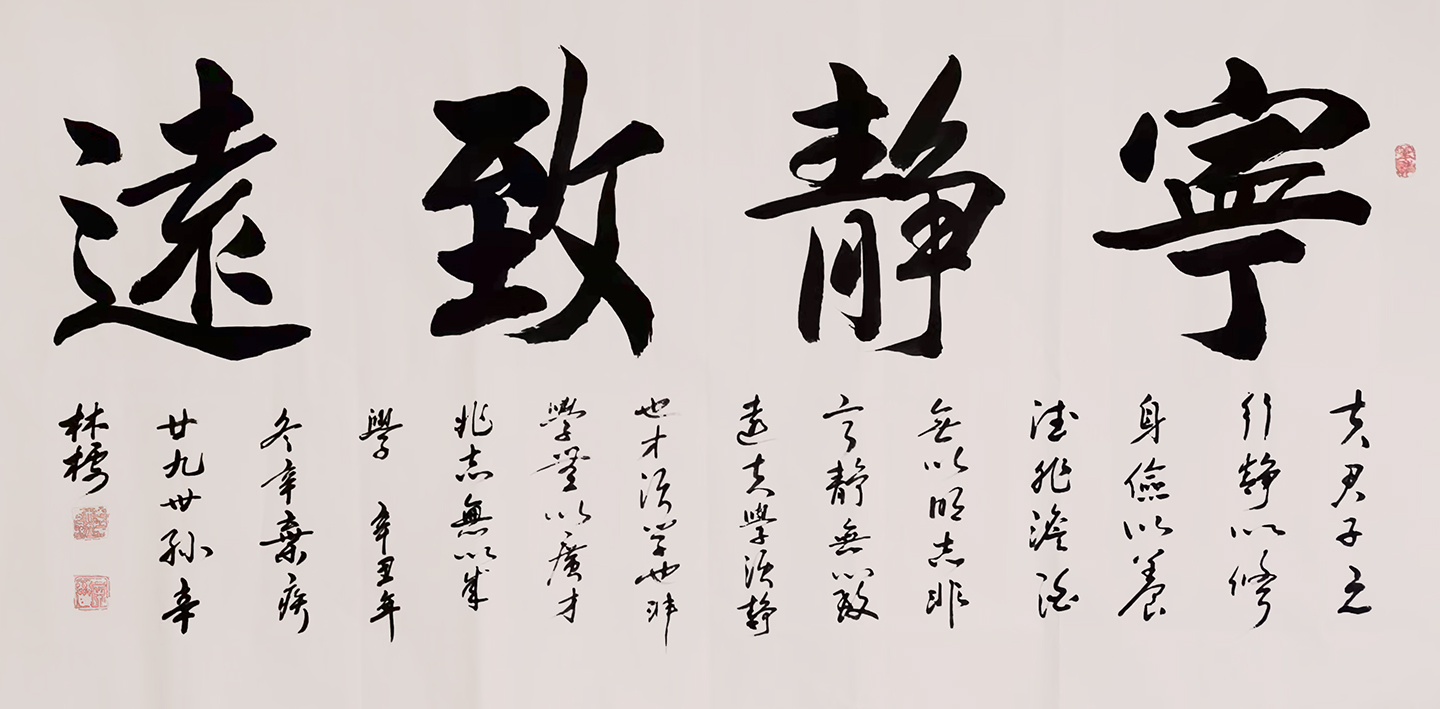 寧静致遠
夫君子之
行静以修
身儉以養
德非澹泊
無以明志非
寧静無以致
遠夫學須静
也才須學也非
學無以廣才
非志無以成
學 辛丑年
冬辛棄疾
廿九世孫辛
林